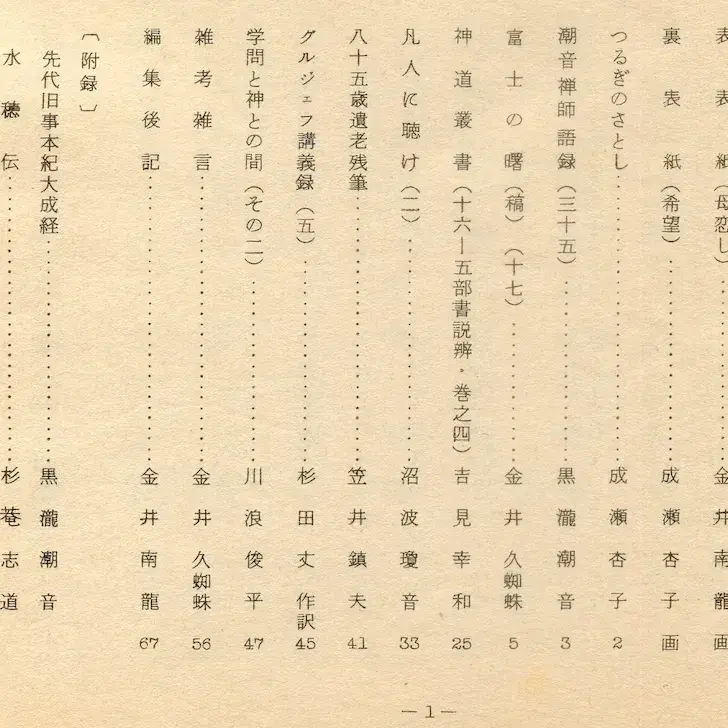 表表紙（母恋し）金井南龍画
裏表紙（希望）成瀬杏子画
つるぎのさとし……………成瀬杏子 2
潮音禅師語録（三十五）……………黒瀧潮音 3
富士の曙（稿）（十七）……………金井久蜘蛛 5
神道叢書（十六―五部書説辨・巻之四）吉見幸和 25
凡人に聴け（二）……………沼波瓊音 33
八十五歳遺老残筆……………笠井鎮夫 41
グルジェフ講義録（五）……………杉田丈作訳 45
学問と神との間（その二）……………川浪俊平 47
雑考雑言……………金井久蜘蛛 56
編集後記……………金井南龍 67
〔附録〕
先代旧事本紀大成経……………黒瀧潮音
水穂伝……………杉菴志道
―1―